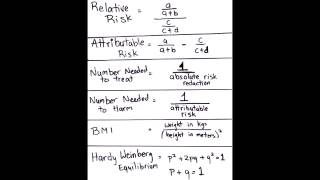 Relative Risk = a/a+b / c/c+d
Attributable Risk = a/a+b - c/c+d
Number Needed to treat = 1/absolute risk reduction
Number Needed to Harm = 1/attributable risk
BMI = weight in kgs/(height in meters)²
Hardy Weinberg Equilibrium = p² + 2pq + q² = 1
p + q = 1